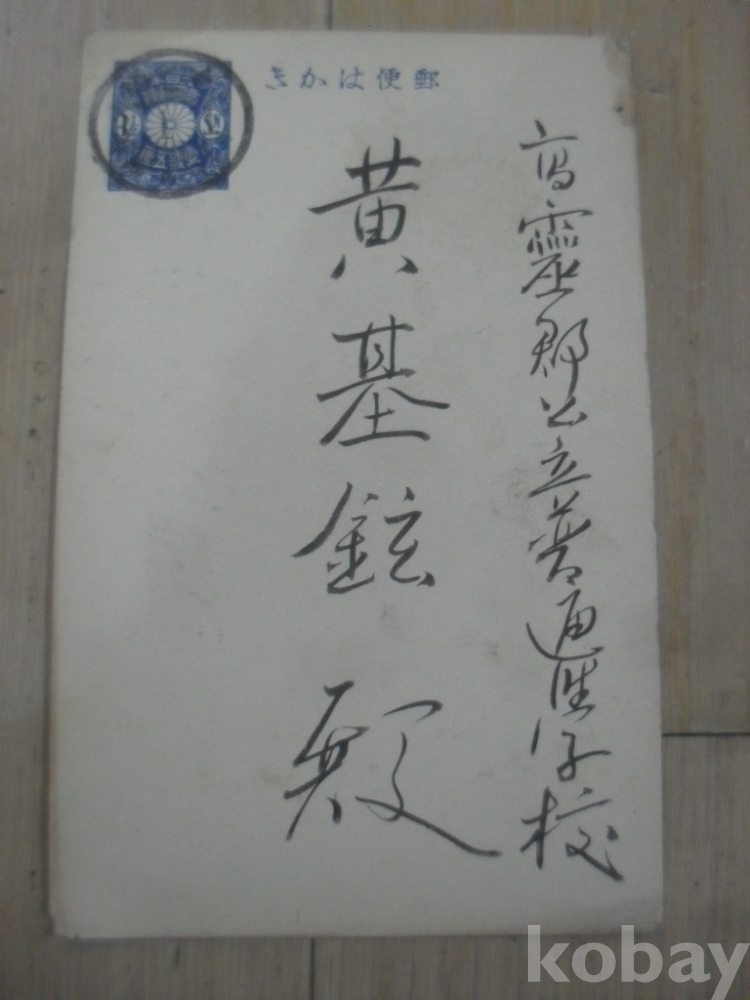 郵便はかき
高靈郡公立普通學校
黄基鉉殿
kobay